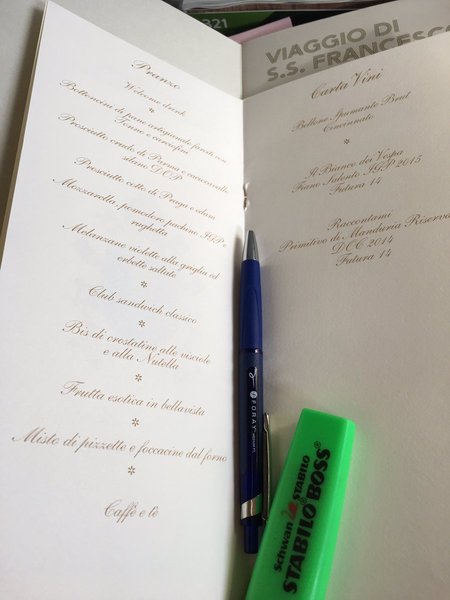 321
VIAGGIO DI
S.S. FRANCESCO
Pranzo
Welcome drink
Bottoncini di pane artigianale farciti con
Tonno e carciofini
Prosciutto crudo di Parma e caciocavallo
silano DOP
Prosciutto cotto di Praga e edam
Mozzarella, pomodoro pachino IGP e
rughetta
Melanzane violette alla griglia ed
erbette saltate
Club sandwich classico
Bis di crostatine alle visciole
e alla Nutella
Frutta esotica in bellavista
Misto di pizzette e foccacine dal forno
Caffè e tè
Carta Vini
Bellone Spumante Brut
Cincinnato
Il Bianco dei Vespa
Fiano Salento IGP 2015
Futura 14
Raccontami
Primitivo di Manduria Riserva
DOC 2014
Futura 14
FORAY
Schwan STABILO
STABILO BOSS